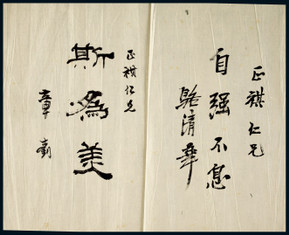 正祺仁兄
自强不息
骆清华
正祺仁兄
斯為美
章劍